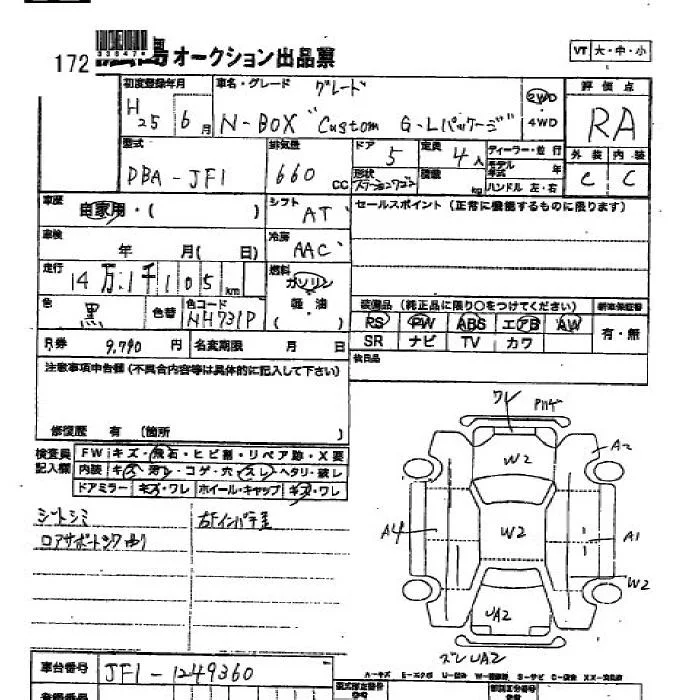 172 オークション出品票
VT 大・中・小
初度登録年月 車名・グレード グレード 評価点
H 25 6月 N-BOX "Custom G-Lパッケージ" 2WD 4WD RA
型式 排気量 ドア 定員 ディーラー・並行 外装 内装
DBA-JF1 660 CC 5 4人 モデル年式 年 C C
形状 積載 kg ハンドル 左・右
車歴 自家用・( ) シフト AT セールスポイント (正常に機能するものに限ります)
車検 年 月( 日) 冷房 AAC
走行 14万1千105km 燃料 ガソリン 軽・油 ( )
色 黒 色替 色コード NH731P
装備品 (純正品に限り○をつけてください) 新車保証書
PS PW ABS エアB AW 有・無
SR ナビ TV カワ
R券 9,790円 名変期限 月 日
検日品
注意事項申告欄 (不具合内容等は具体的に記入して下さい)
修復歴 有 (箇所 )
検査員記入欄 FW キズ・飛石・ヒビ割・リペア跡・X要
内装 キズ・汚レ・コゲ・穴・スレ・ヘタリ・破レ
ドアミラー キズ・ワレ ホイール・キャップ キズ・ワレ
シートシミ
コアサポート
ワレ
A2
W2
A4
W2
A1
W2
UA2
ズレUA2
車台番号 JF1-1249360
A-キズ E-エクボ U-凹み